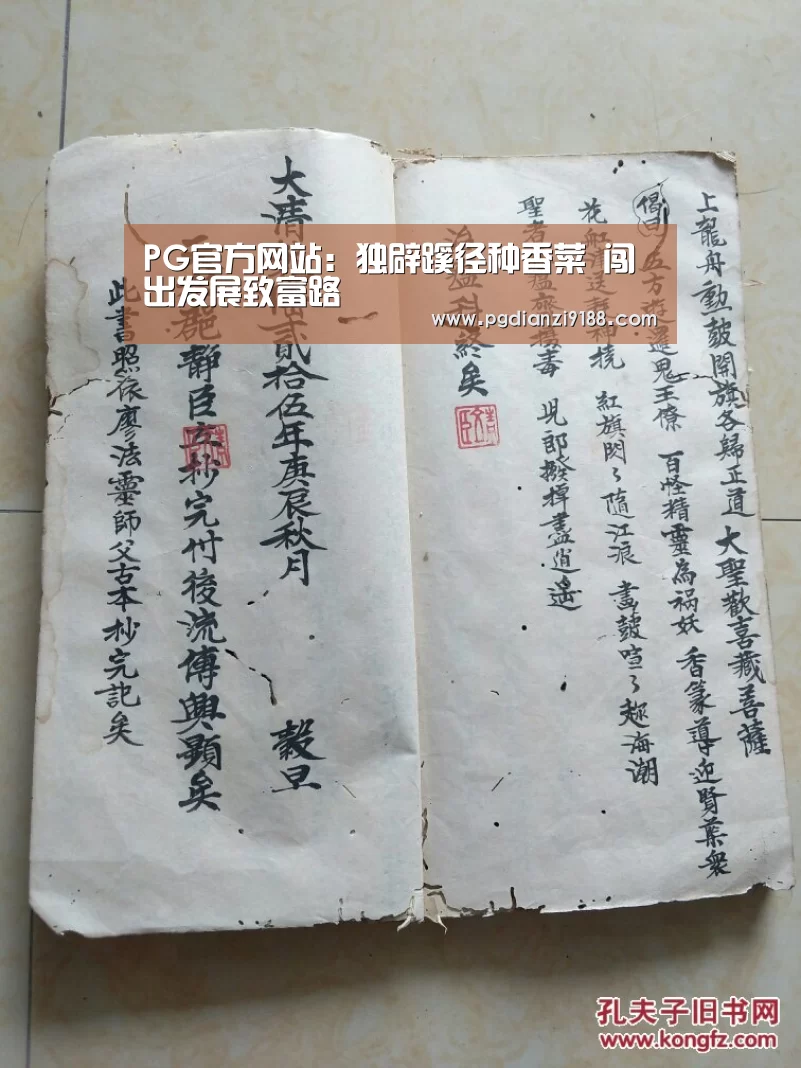 上龍舟動鼓開旗各歸正道 大聖歡喜藏菩薩
偈曰 五方遊邏鬼王僚 百怪精靈為禍妖 香篆導迎賢葉衆
花船請送 神撓 紅旗閃々隨江浪 畫鼓喧々趂海潮
聖者 瘟 攝毒 兒郎撥棹盡逍遙
瘟科終矣
大清 貳拾伍年庚辰秋月 穀旦
靜臣玄抄完付後流傳興顯矣
此書照依廖法靈師父古本抄完記矣
PG官方网站：独辟蹊径种香菜 闯
出发展致富路
www.pgdianzi9188.com
孔夫子旧书网
www.kongfz.com